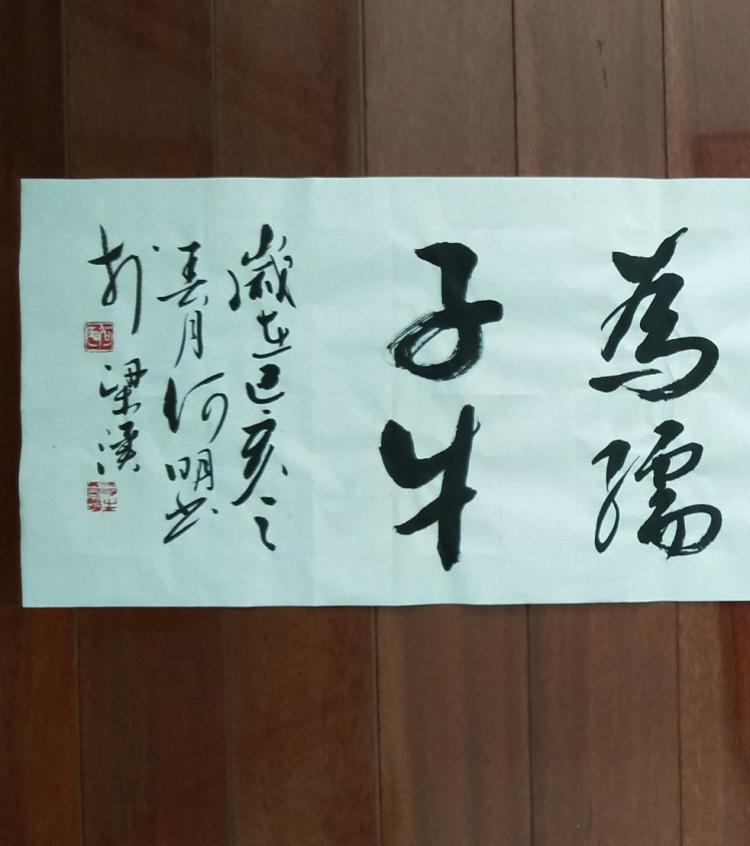 為孺
子牛
歲在己亥之
春月何明书
於梁溪